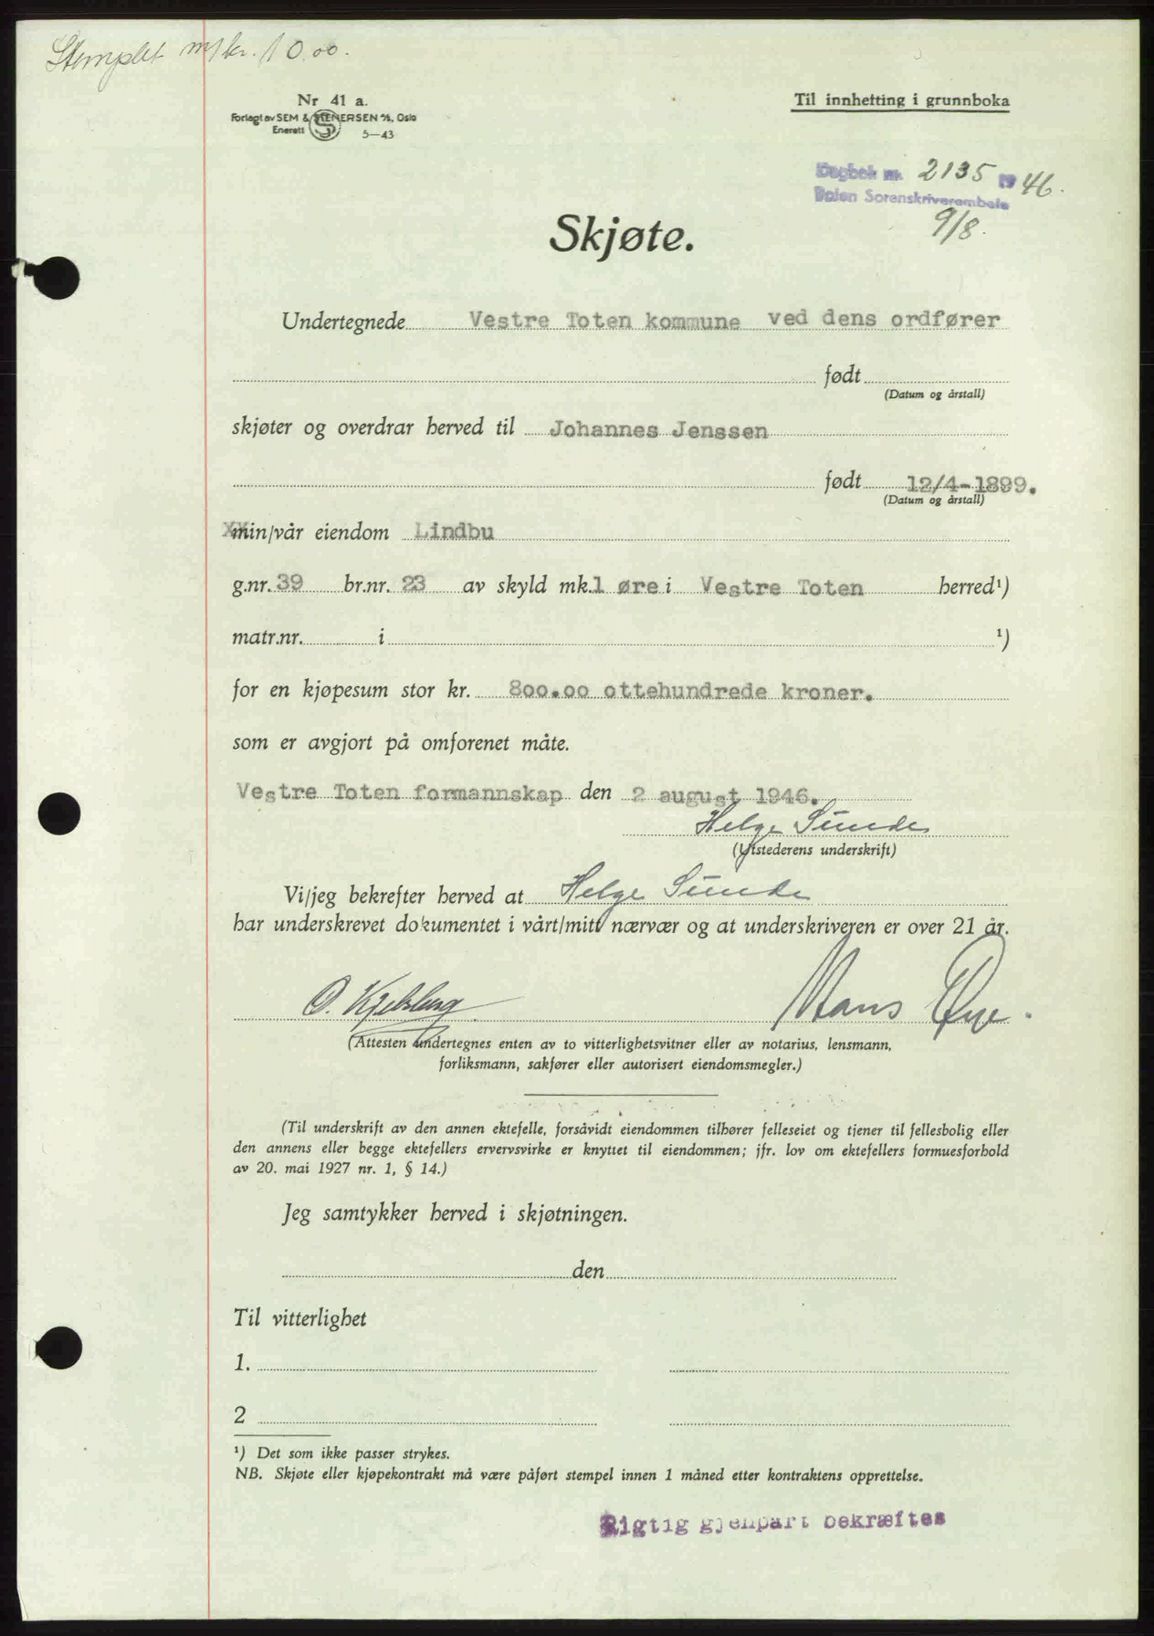 Stemplet m/kr. 10.00.
Nr 41 a.
Forlagt av SEM & STENERSEN A/S, Oslo
Enerett 5-43
Til innhetting i grunnboka
Dagbok nr. 2135 1946.
Toten Sorenskriverembete
9/8.
Skjøte.
Undertegnede Vestre Toten kommune ved dens ordfører
født
(Datum og årstall)
skjøter og overdrar herved til Johannes Jenssen
født 12/4-1899.
(Datum og årstall)
min/vår eiendom Lindbu
g.nr. 39 br.nr. 23 av skyld mk. 1 øre i Vestre Toten herred¹)
matr.nr. i ¹)
for en kjøpesum stor kr. 800.00 ottehundrede kroner.
som er avgjort på omforenet måte.
Vestre Toten formannskap den 2 august 1946.
Helge Sunde
(Utstederens underskrift)
Vi/jeg bekrefter herved at Helge Sunde
har underskrevet dokumentet i vårt/mitt nærvær og at underskriveren er over 21 år.
O. Hans Øye.
(Attesten undertegnes enten av to vitterlighetsvitner eller av notarius, lensmann,
forliksmann, sakfører eller autorisert eiendomsmegler.)
(Til underskrift av den annen ektefelle, forsåvidt eiendommen tilhører felleseiet og tjener til fellesbolig eller
den annens eller begge ektefellers ervervsvirke er knyttet til eiendommen; jfr. lov om ektefellers formuesforhold
av 20. mai 1927 nr. 1, § 14.)
Jeg samtykker herved i skjøtningen.
den
Til vitterlighet
1.
2
¹) Det som ikke passer strykes.
NB. Skjøte eller kjøpekontrakt må være påført stempel innen 1 måned etter kontraktens opprettelse.
Rigtig gjenpart bekræftes